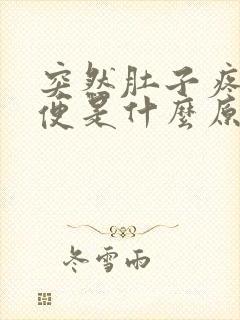 突然肚子疼
便是什麼原
冬雪雨